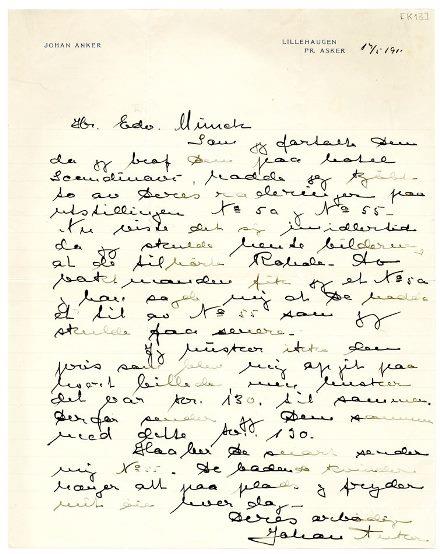 [K 13]
JOHAN ANKER
LILLEHAUGEN
PR. ASKER
Hr. Edv. Munck
Som jeg fortalte Dem
da jeg traf Dem paa hotel
Scandinavie, hadde jeg kjøbt
to av Deres raderinger paa
utstillingen No 5a og No 55.
Nu viste det sig imidlertid
da jeg skulde hente billederne
at de tilhørte Rohde. Av
vaktmanden fik jeg et No 5a
og han sagde mig at De hadde
et til av No 55 som jeg
skulde faa senere.
Jeg husker ikke den
pris som blev mig opgit paa
hvert billede men husker
det var kr. 130. til sammen.
Derfor sender jeg Dem sammen
med dette kr. 130.
Haaber De snart sender
mig No 55. De badende
hænger alt paa plads og fryder
mit øie hver dag.
Deres ærbødige
Johan Anker